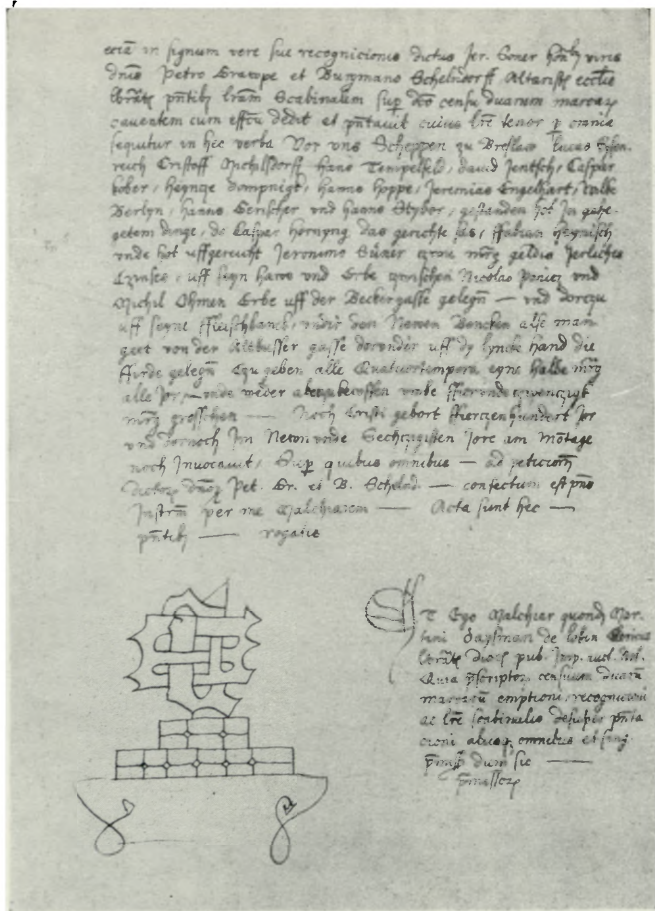 eciā in signum vere sue recognicionis dictus Jer. Soner viris
dnīs Petro Grawpe et Burgmano Schelndorff Altaristis
pntibꝫ lrām Scabinalem sup censu duarum marcaꝝ
caventem cum effcu dedit et pntauit cuius lrē tenor omnia
sequitur in hec verba Vor vns Scheppen zu Breslaw lucas
reich Cristoff Michilsdorff hans Tempelfeld, david Jentsch, Caspar
hober, heyncze dompnigk, hanns hoppe, Jeremias Engelhart, valte
Berlyn, hanns Gerischer vnd hanns Stybor, gestanden hot Jn gehe-
getem dinge, do Caspar hornyng das gerichte sas,
vnde hot uffgereicht Jeronimo czwu mrg geldis Jerliches
Czinses, uff seyn haws vnd Erbe czwischen Nicolao vnd
Michil Ohmen Erbe uff der Beckergasse gelegn — vnd dorczu
uff seyne ffleischbanck, vndir den Newen Bencken alse man
geet von der gasse dorvndir uff dy lyncke hand die
ffirde gelegn Czu geben alle Quatuortempora eyne halbe mrg
alle Jor, vnde weder abeczukewffen vmbe
mrg groschen — Noch Cristi gebort ffierczenhundert Jor
vnd dornoch Jm Newnvnde Sechczigisten Jore am Mōtage
noch Jnvocauit, Sup quibus omnibus — ad peticiom
dictoꝝ dnoꝝ Pet. Gr. et B. Schelnd. — confectum est pns
Jnstrm per me Malchiarem — Acta sunt hec —
pntibꝫ — rogatis
Et Ego Malchiar quondꝫ Mar-
tini de lobin Clericus
dioc pub. Jmp. auct. Not.
Quia pscriptoꝝ censuum duaꝝ
marcaꝝ empcioni, recognicioni
ac lrē scabinalis desuper pnta
cioni aliisqꝫ omnibus et
pmissꝫ dum sic —
pmissoꝝ